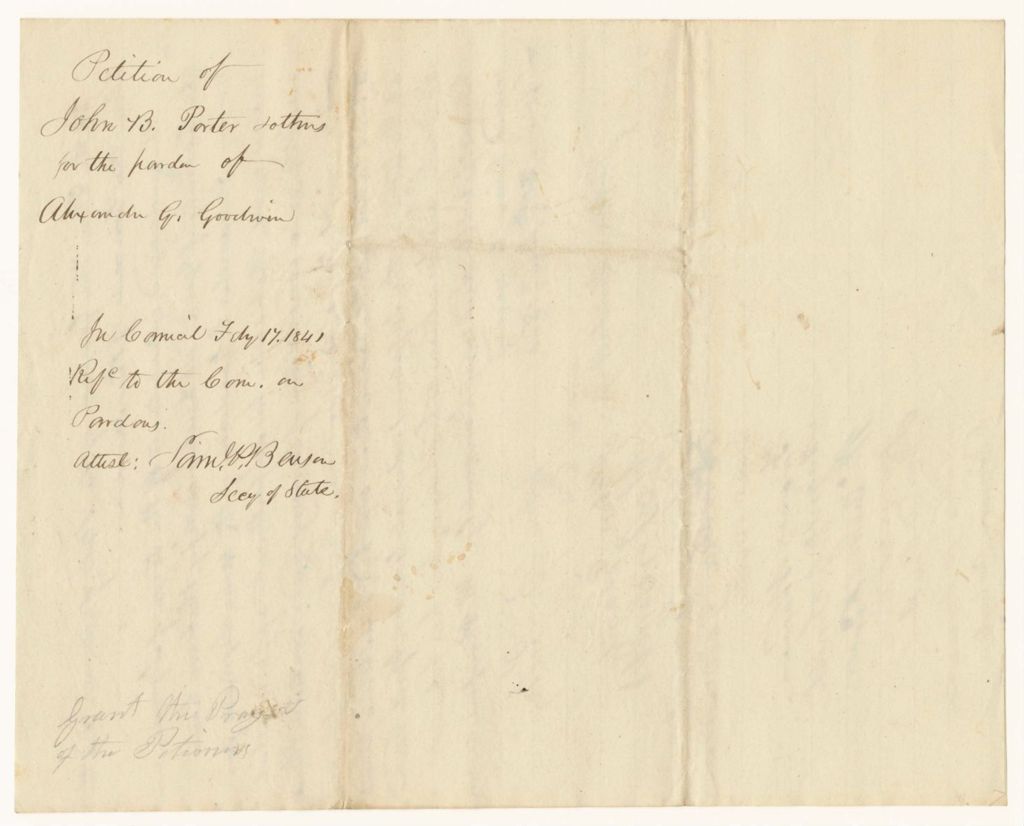 Petition of
John B. Porter & others
for the pardon of
Alexander G. Goodwin
In Council Feby 17. 1841
Refd to the Com. on
Pardons.
Attest: Saml. P. Benson
Secy of State.
Grant the Prayer
of the Petioners